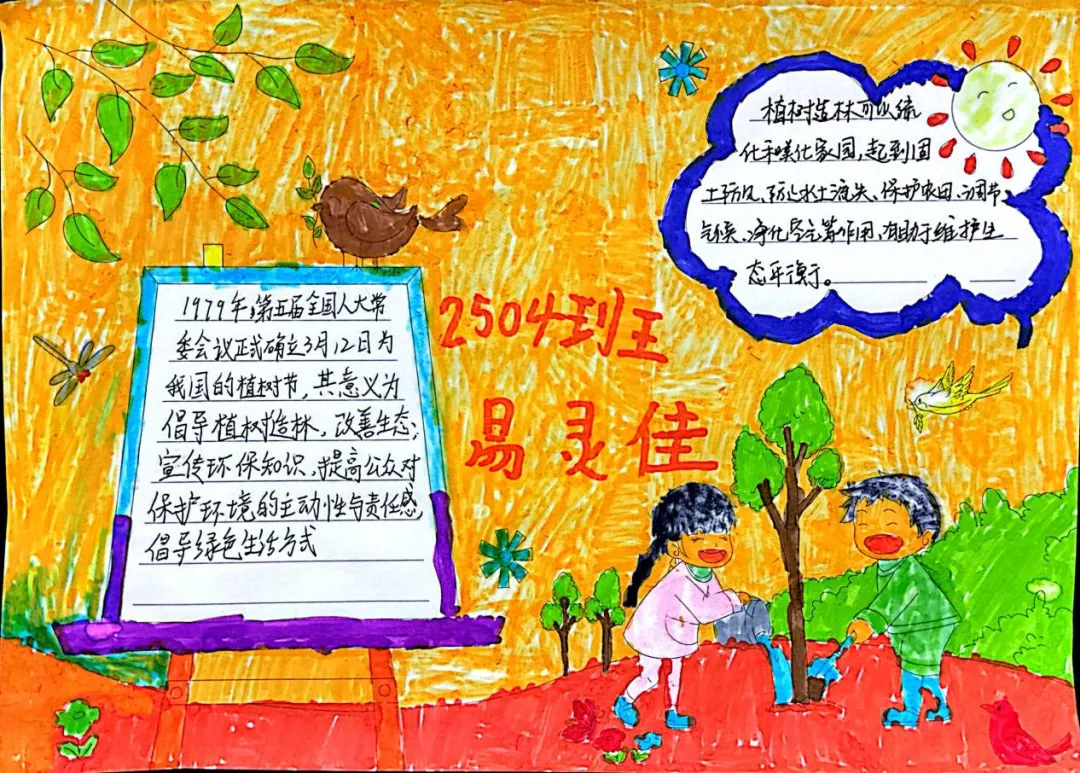 1979年,第五届全国人大常
委会议正式确立3月12日为
我国的植树节，其意义为
倡导植树造林，改善生态；
宣传环保知识，提高公众对
保护环境的主动性与责任感，
倡导绿色生活方式
2504班王
易灵佳
植树造林可以绿
化和美化家园，起到固
土防风、防止水土流失、保护农田、调节
气候、净化空气等作用，有助于维护生
态平衡。